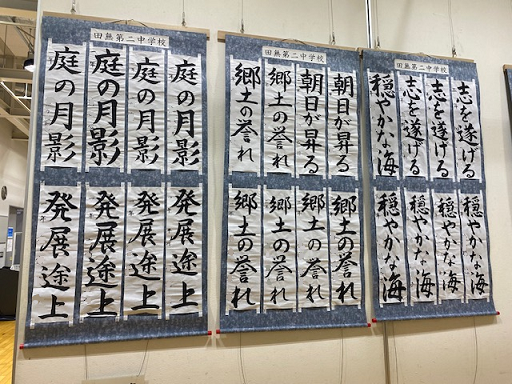 田無第二中学校
志を遂げる
志を遂げる
志を遂げる
穏やかな海
穏やかな海
穏やかな海
穏やかな海
穏やかな海
田無第二中学校
朝日が昇る
朝日が昇る
郷土の誉れ
郷土の誉れ
郷土の誉れ
郷土の誉れ
郷土の誉れ
郷土の誉れ
田無第二中学校
庭の月影
庭の月影
庭の月影
庭の月影
発展途上
発展途上
発展途上
発展途上